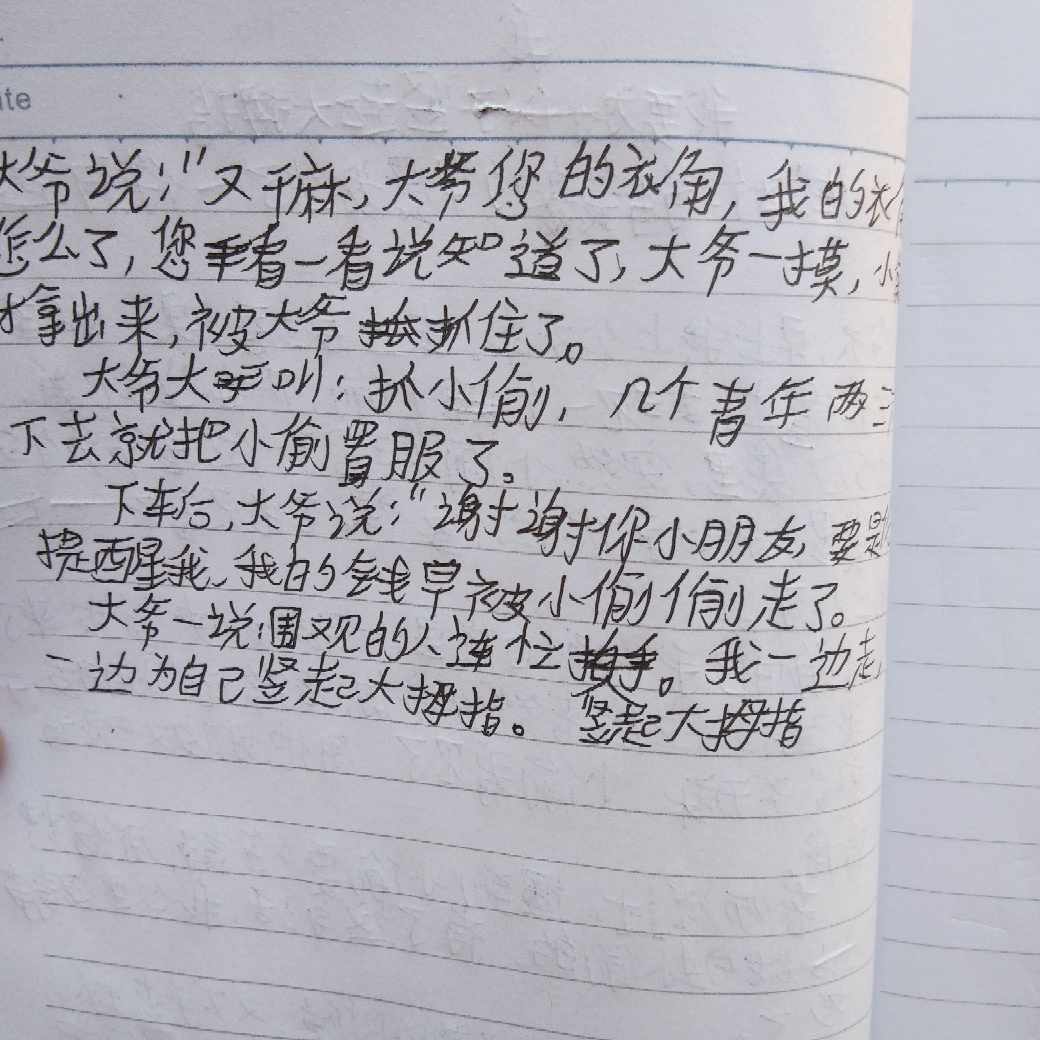 ate
大爷说:"又干麻,大爷您的衣角,我的衣
怎么了,您看一看说知道了,大爷一摸,小
才拿出来,被大爷抓住了。
大爷大叫:抓小偷,几个青年两三
下去就把小偷置服了。
下车后,大爷说:"谢谢你小朋友,要是
提醒我,我的钱早被小偷偷走了。
大爷一说围观的人连忙拍手。我一边走,
一边为自己竖起大拇指。 竖起大拇指